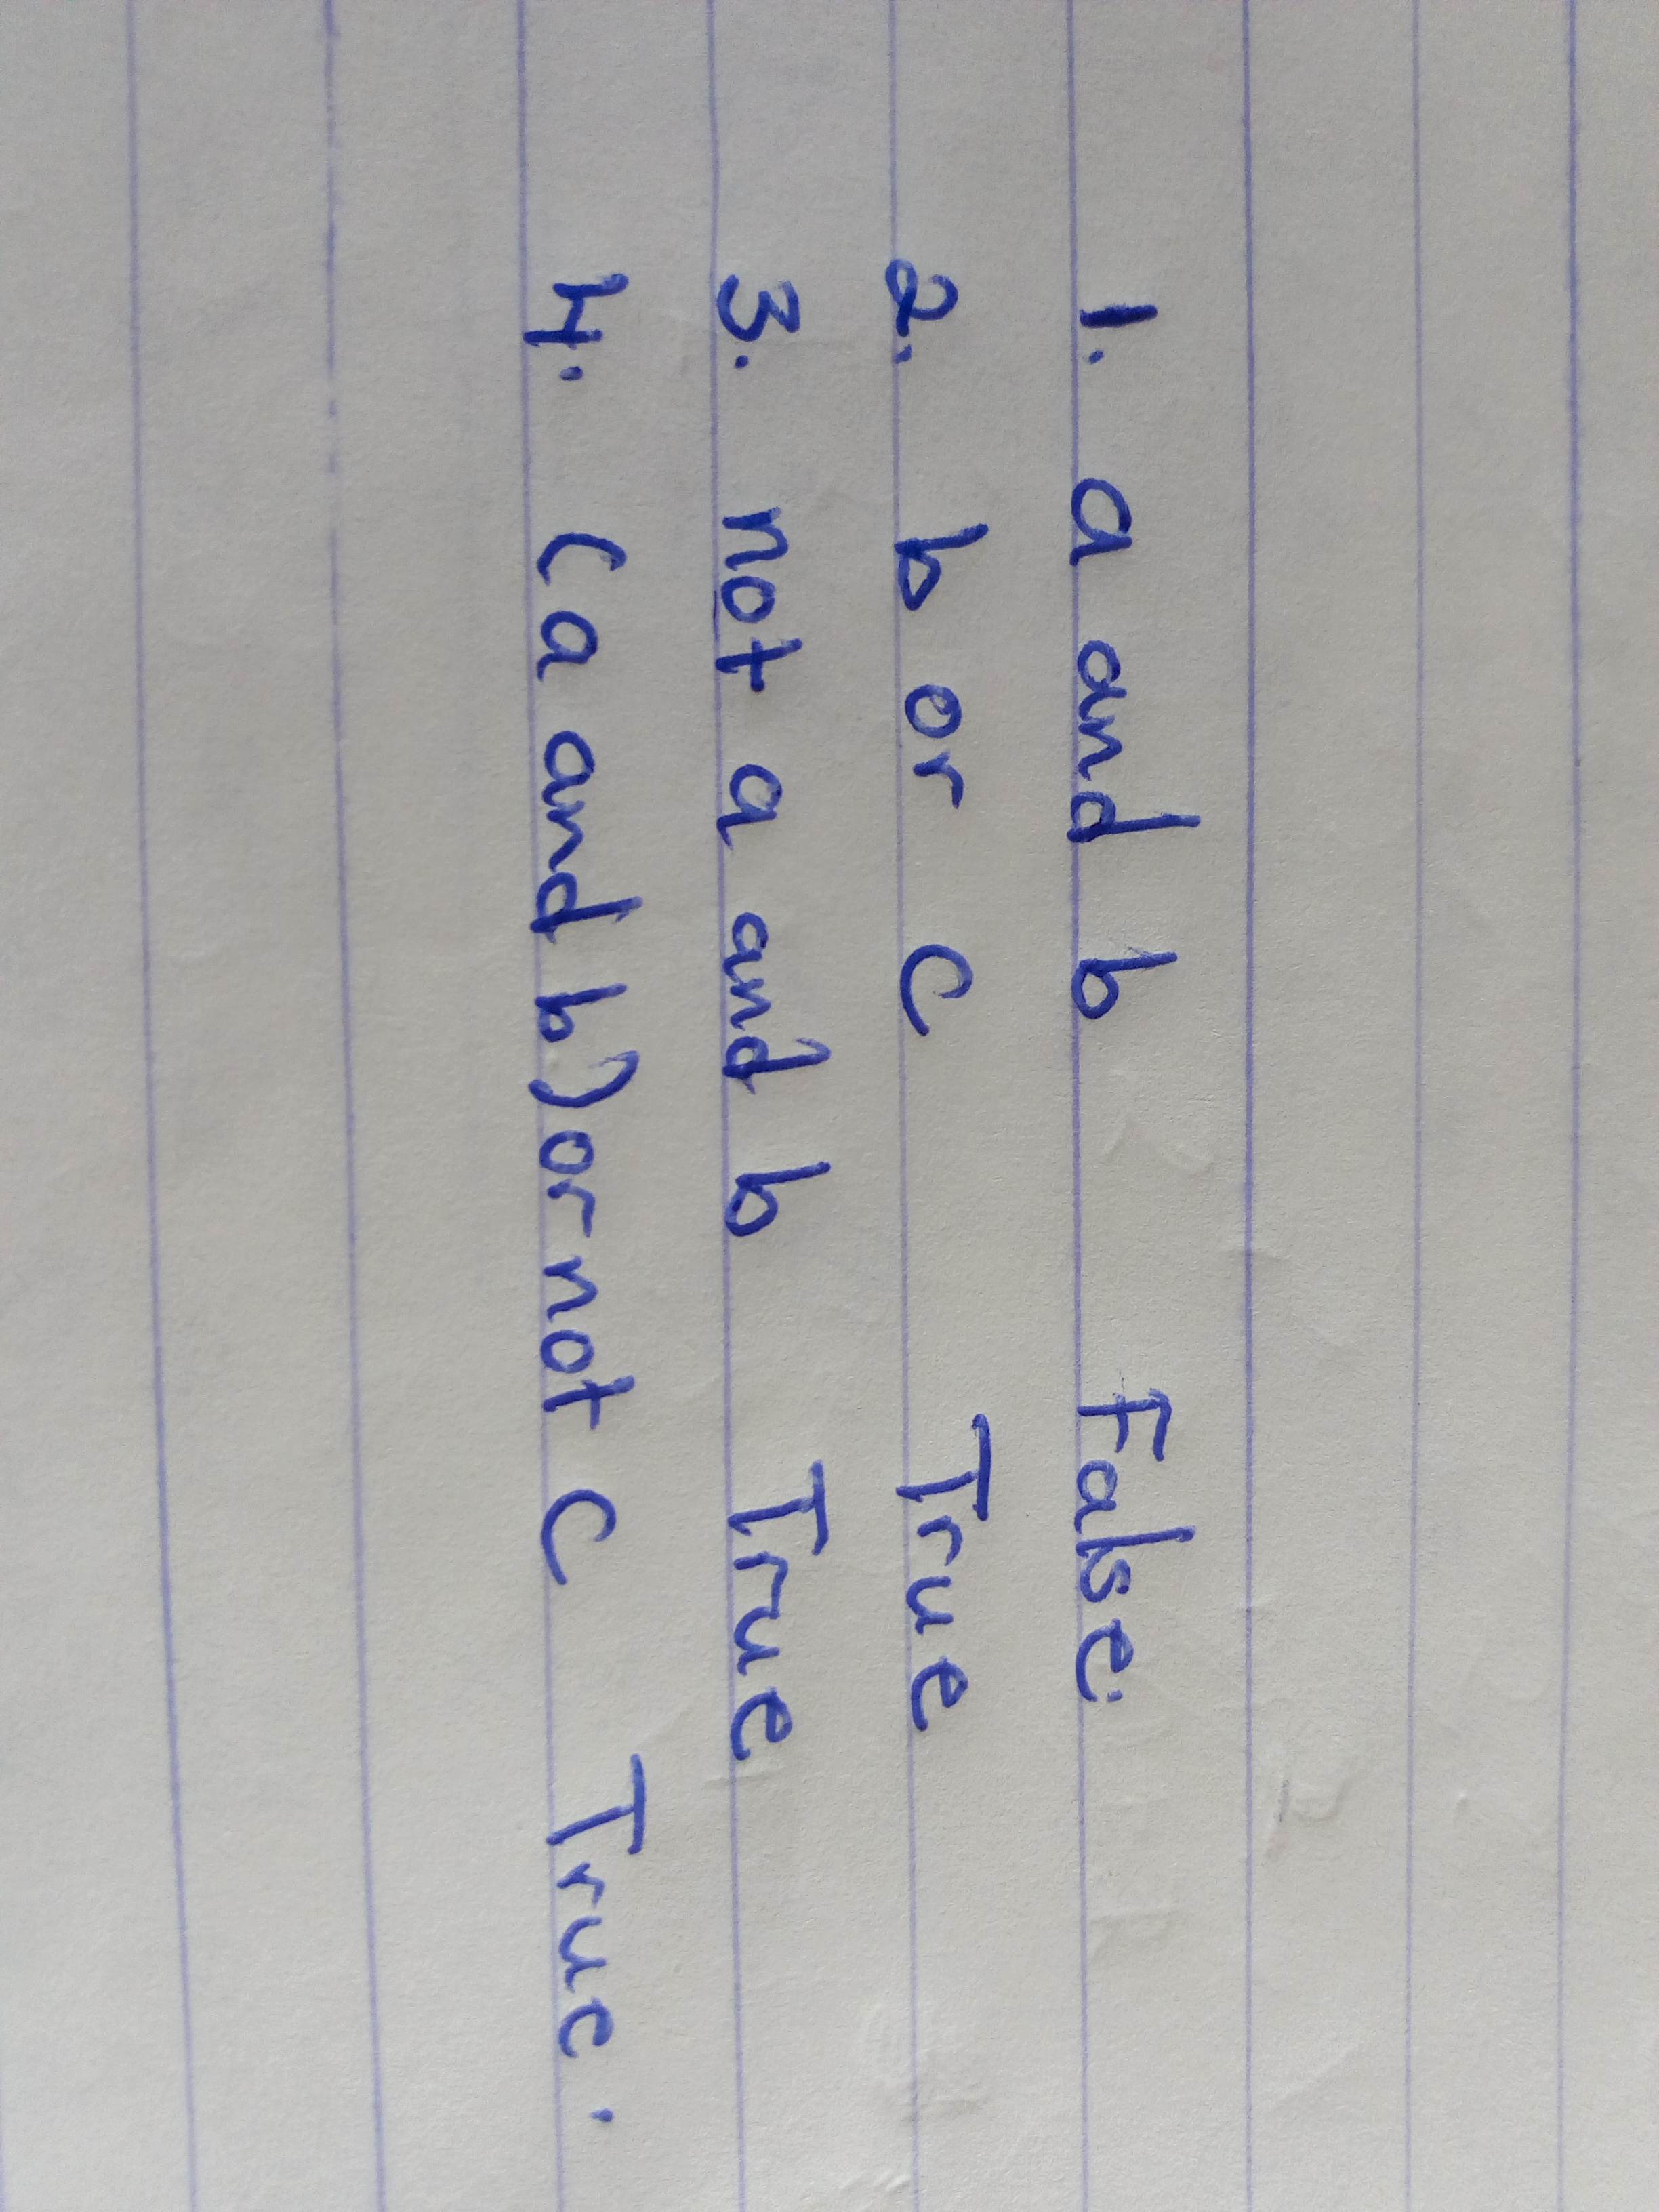 1. a and b False.
2. b or c True
3. not a and b True
4. (a and b) or not c True.